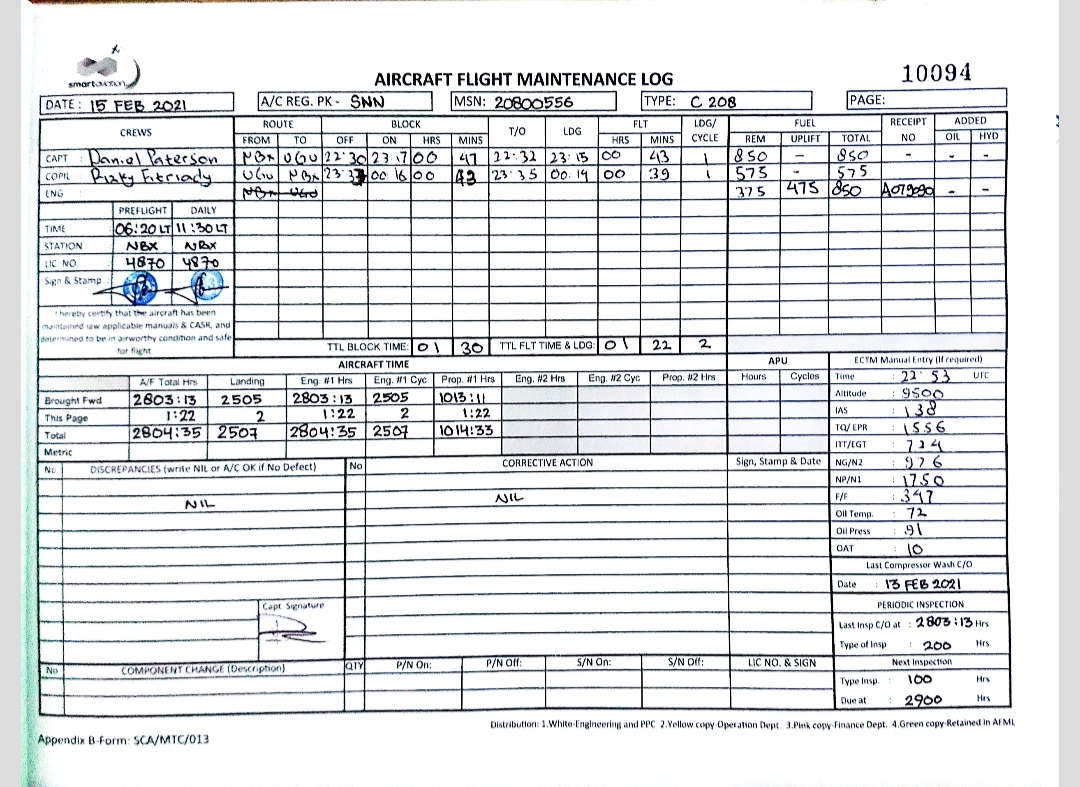 smart aviation
AIRCRAFT FLIGHT MAINTENANCE LOG
10094
DATE : 15 FEB 2021 A/C REG. PK - SNN MSN: 20800556 TYPE: C 208 PAGE:
CREWS ROUTE BLOCK T/O LDG FLT LDG/ CYCLE FUEL RECEIPT NO ADDED
FROM TO OFF ON HRS MINS HRS MINS REM UPLIFT TOTAL OIL HYD
CAPT Daniel Paterson NBX UGU 22:30 23.17 00 47 22:32 23:15 00 43 1 850 - 850 - - -
COPIL Rizky Fitriady UGU NBX 23:33 00 16 00 43 23:35 00.14 00 39 1 575 - 575
ENG NBX UGU 375 475 850 A079090 - -
PREFLIGHT DAILY
TIME 06:20 LT 11:30 LT
STATION NBX NBX
LIC NO. 4870 4870
Sign & Stamp
I hereby certify that the aircraft has been
maintained iaw applicable manuals & CASR, and
determined to be in airworthy condition and safe
for flight
TTL BLOCK TIME: 01 30 TTL FLT TIME & LDG: 01 22 2
AIRCRAFT TIME APU
A/F Total Hrs Landing Eng. #1 Hrs Eng. #1 Cyc Prop. #1 Hrs Eng. #2 Hrs Eng. #2 Cyc Prop. #2 Hrs Hours Cycles
Brought Fwd 2803:13 2505 2803:13 2505 1013:11
This Page 1:22 2 1:22 2 1:22
Total 2804:35 2507 2804:35 2507 1014:33
Metric
ECTM Manual Entry (If required)
Time : 22 53 UTC
Altitude : 9500
IAS : 138
TQ/EPR : 1556
ITT/EGT : 724
NG/N2 : 976
NP/N1 : 1750
F/F : 347
Oil Temp. : 72
Oil Press : 91
OAT : 10
Last Compressor Wash C/O
Date : 13 FEB 2021
PERIODIC INSPECTION
Last Insp C/O at : 2803:13 Hrs
Type of Insp : 200 Hrs
Next Inspection
Type Insp. : 100 Hrs
Due at : 2900 Hrs
No DISCREPANCIES (write NIL or A/C OK if No Defect) No CORRECTIVE ACTION Sign, Stamp & Date
NIL NIL
Capt. Signature
No COMPONENT CHANGE (Description) QTY P/N On: P/N Off: S/N On: S/N Off: LIC NO. & SIGN
Distribution: 1.White-Engineering and PPC 2.Yellow copy-Operation Dept. 3.Pink copy-Finance Dept. 4.Green copy-Retained in AFML
Appendix B-Form: SCA/MTC/013